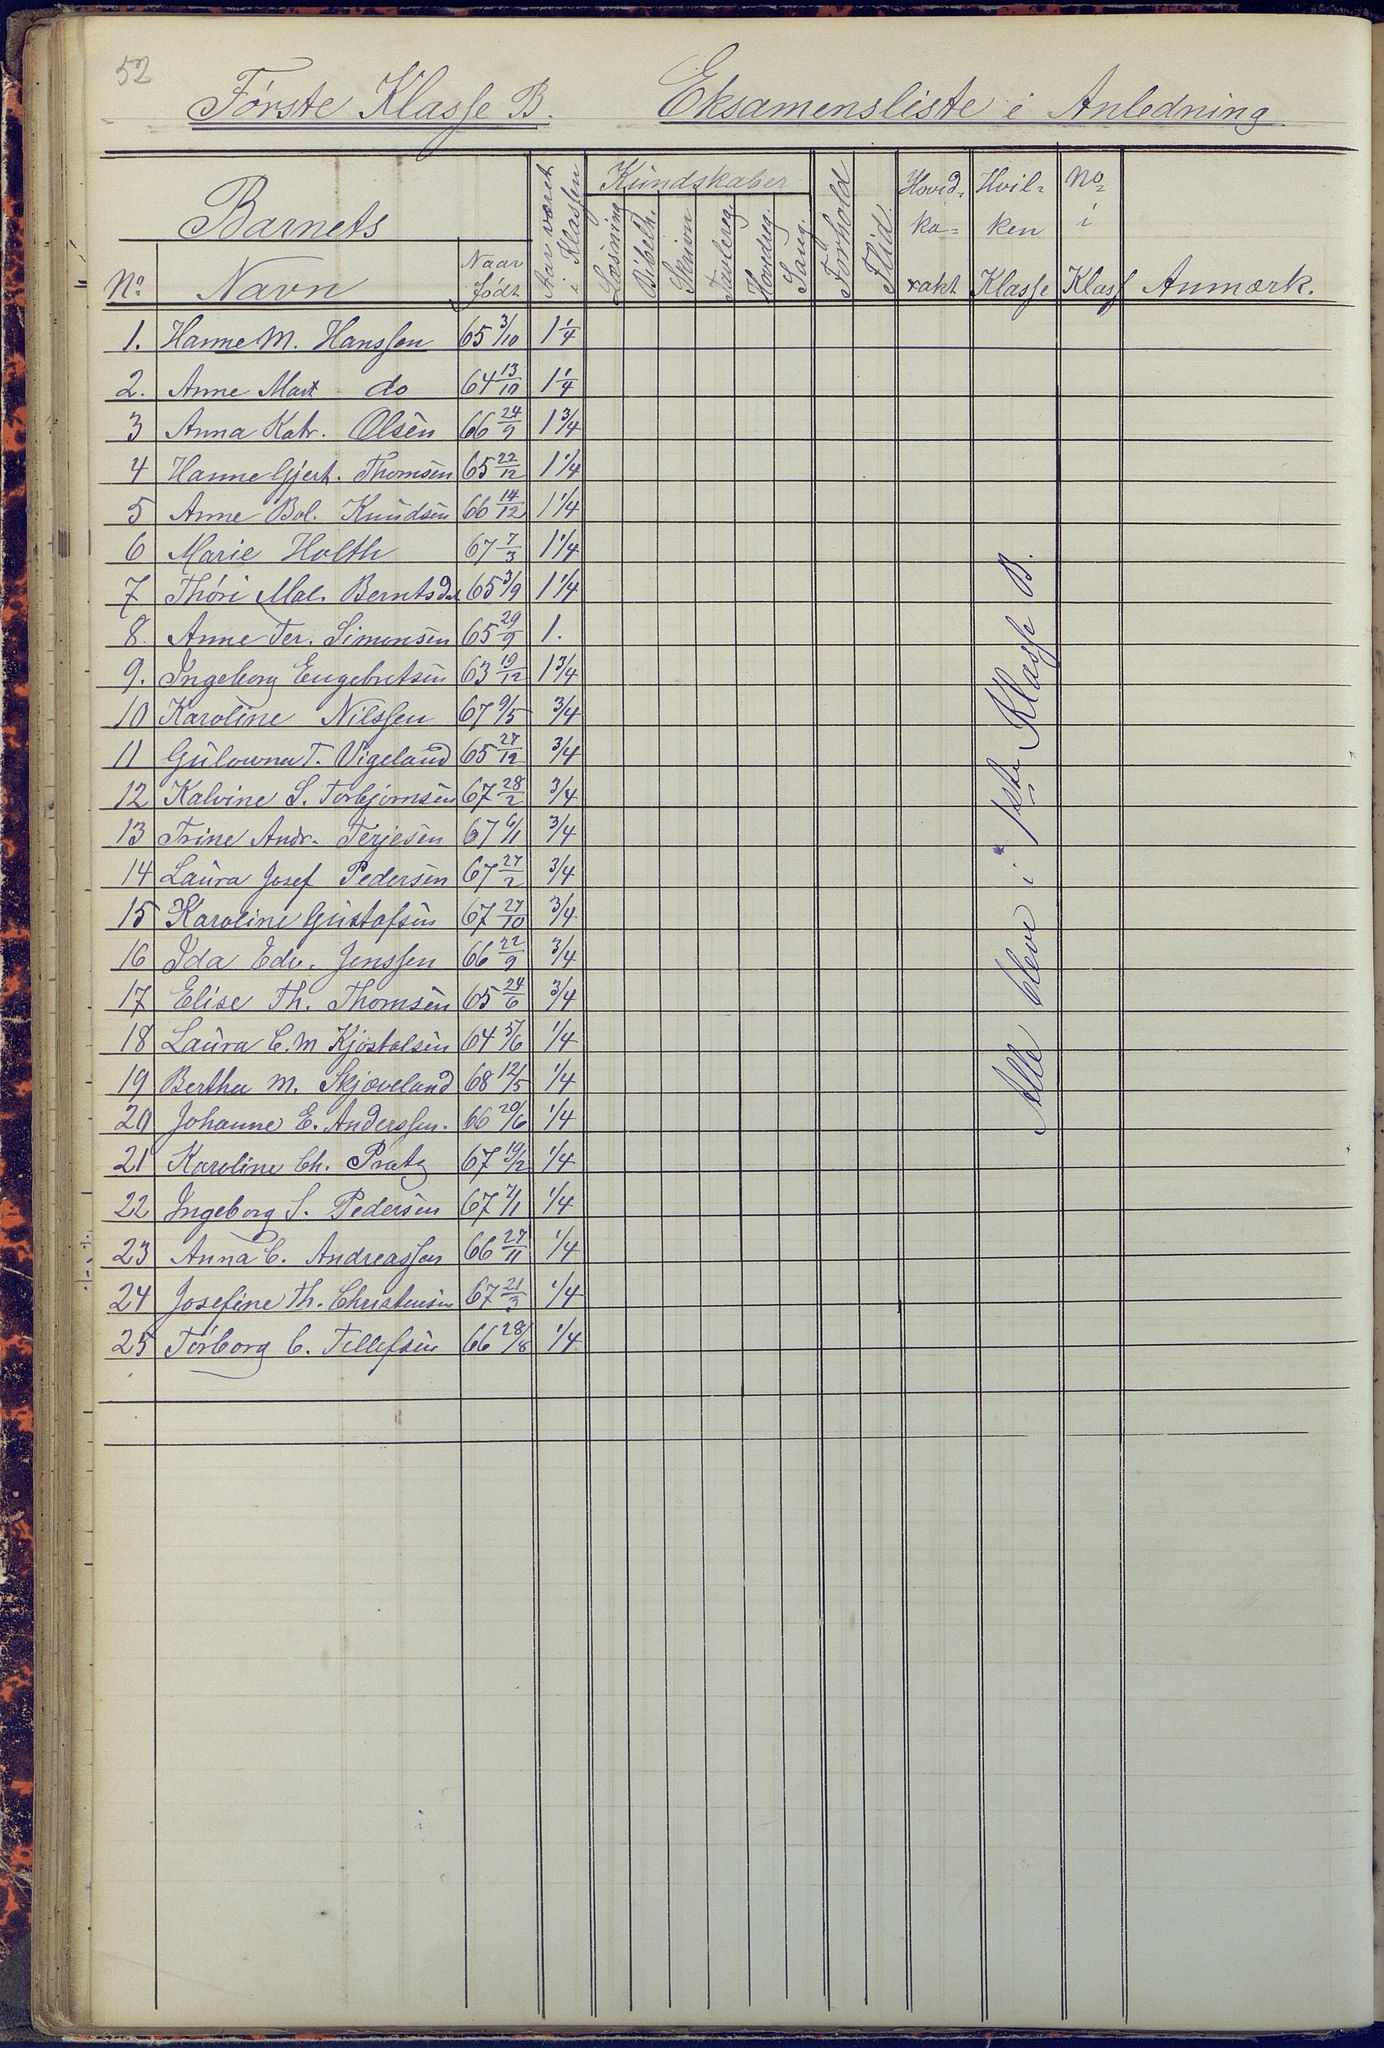 52
Første Klasse B. Eksamensliste i Anledning
Barnets
No Navn Naar født Aar været i Klassen Kundskaber Læsning Bibelh. Skrivn Tavlereg. Hovedreg. Sang. Forhold Flid. Hovedkarakt Hvilken Klasse No i Klass Anmærk.
1. Hanne M. Hanssen 65 3/10 1 1/4
2. Anne Mart do 64 13/10 1 1/4
3 Anna Katr. Olsen 66 24/9 1 3/4
4 Hanne Gjert. Thomsen 65 22/12 1 1/4
5 Anne Bol. Knudsen 66 14/12 1 1/4
6 Marie Holth 67 7/3 1 1/4
7 Thóri Mal. Berntsdat 65 3/9 1 1/4
8. Anne Ter. Simonsen 65 29/9 1.
9. Ingeborg Engebretsen 63 19/12 1 3/4
10 Karoline Nilssen 67 9/5 3/4
11 T. Vigeland 65 27/12 3/4
12 Kalvine S. Torbjørnsen 67 28/2 3/4
13 Trine Andr. Terjesen 67 6/11 3/4
14 Laura Josef Pedersen 67 27/2 3/4
15 Karoline Gustafsen 67 27/10 3/4
16 Ida Edv. Jenssen 66 22/9 3/4
17 Elise Th. Thomsen 65 24/6 3/4
18 Laura C. M Kjøstolsen 64 1/4
19 Berthe M. Skjæveland 68 12/5 1/4
20 Johanne E. Anderssen. 66 20/6 1/4
21 Karoline Ch. Pratz 67 19/2 1/4
22 Ingeborg S. Pedersen 67 7/1 1/4
23 Anna C. Andreassen 66 27/11 1/4
24 Josefine Th. Christensen 67 21/3 1/4
25 Torborg C. Tellefsen 66 28/8 1/4
Alle bleve i 1ste Klasse B.